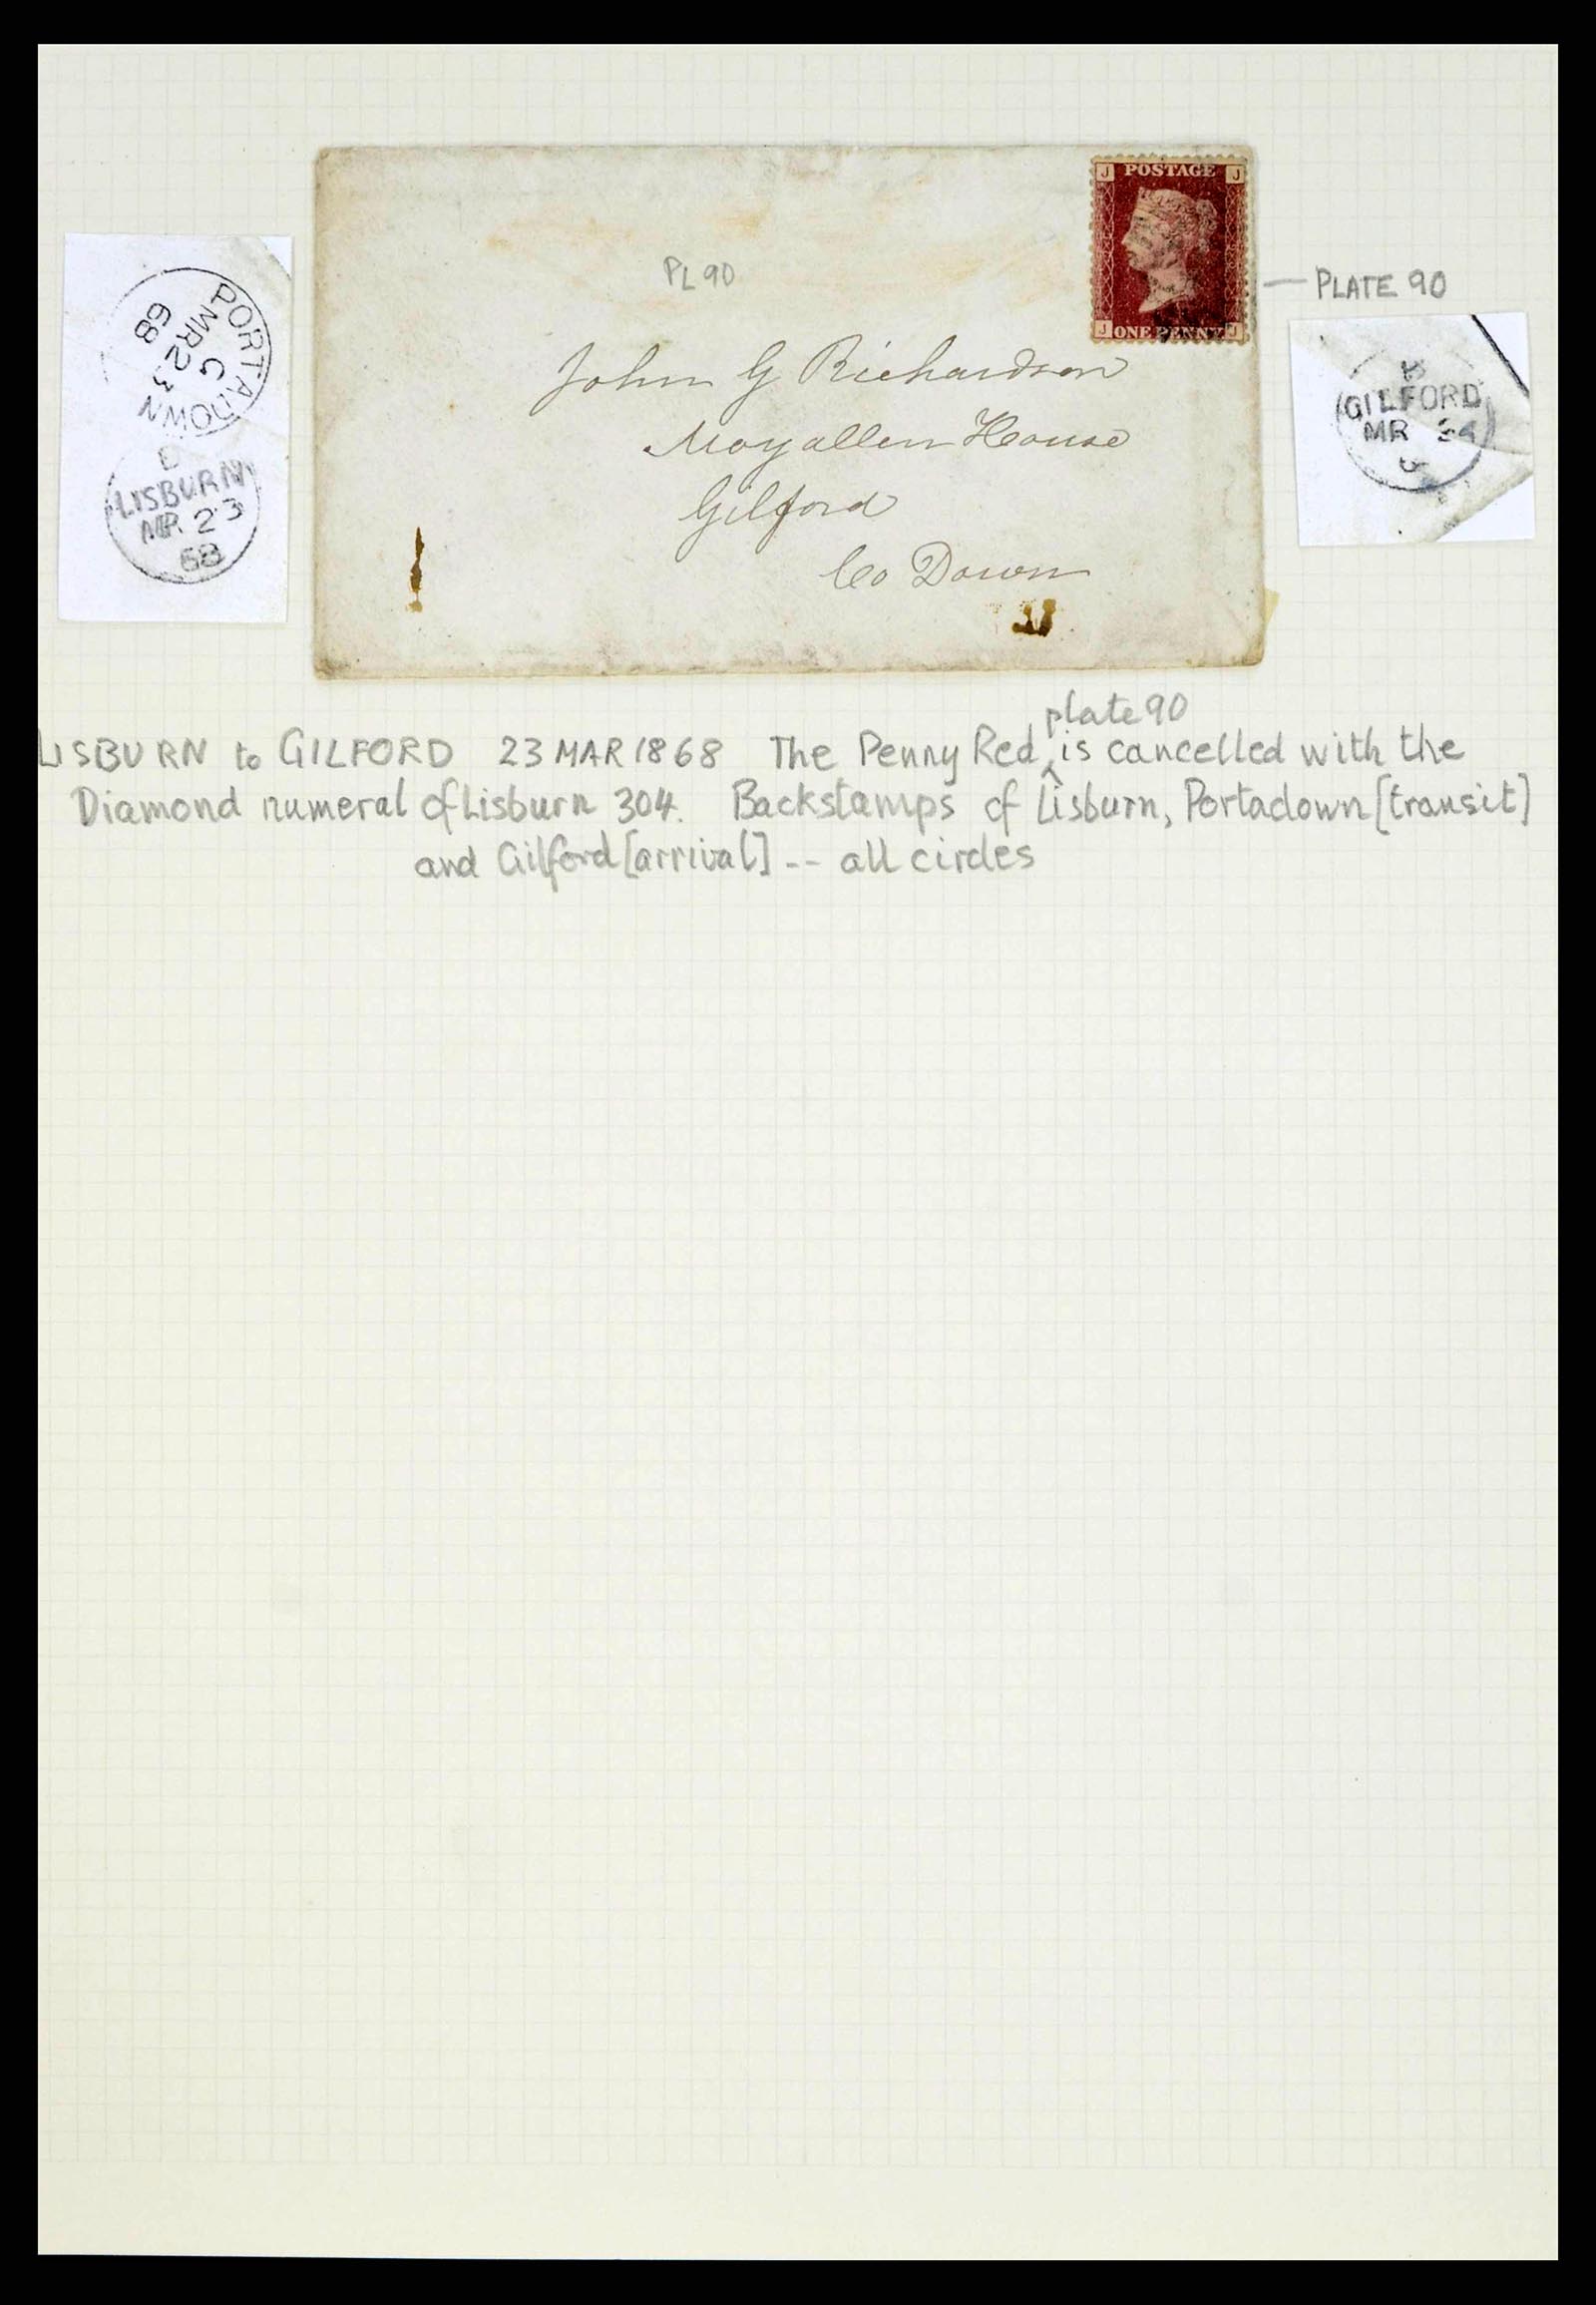 J POSTAGE J
J ONE PENNY J
PL 90
PLATE 90
John G Richardson
Moyallen House
Gilford
Co Down
PORTADOWN
G
MR 23
68
D
LISBURN
MR 23
68
B
GILFORD
MR 24
plate 90
LISBURN to GILFORD 23 MAR 1868 The Penny Red ^ is cancelled with the
Diamond numeral of Lisburn 304. Backstamps of Lisburn, Portadown [transit]
and Gilford [arrival] -- all circles